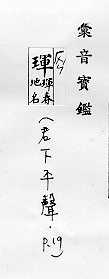 彙音寶鑑
琿
琿春
地名
(君下平聲・
P.19